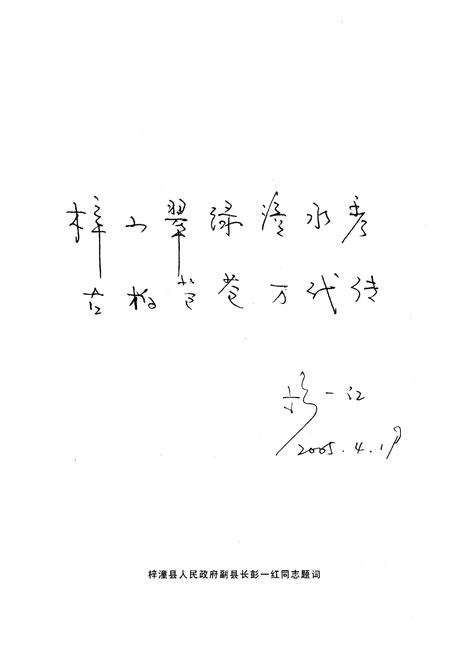 梓山翠绿潼水秀
古柏苍苍万代传
彭一红
2005.4.19
梓潼县人民政府副县长彭一红同志题词